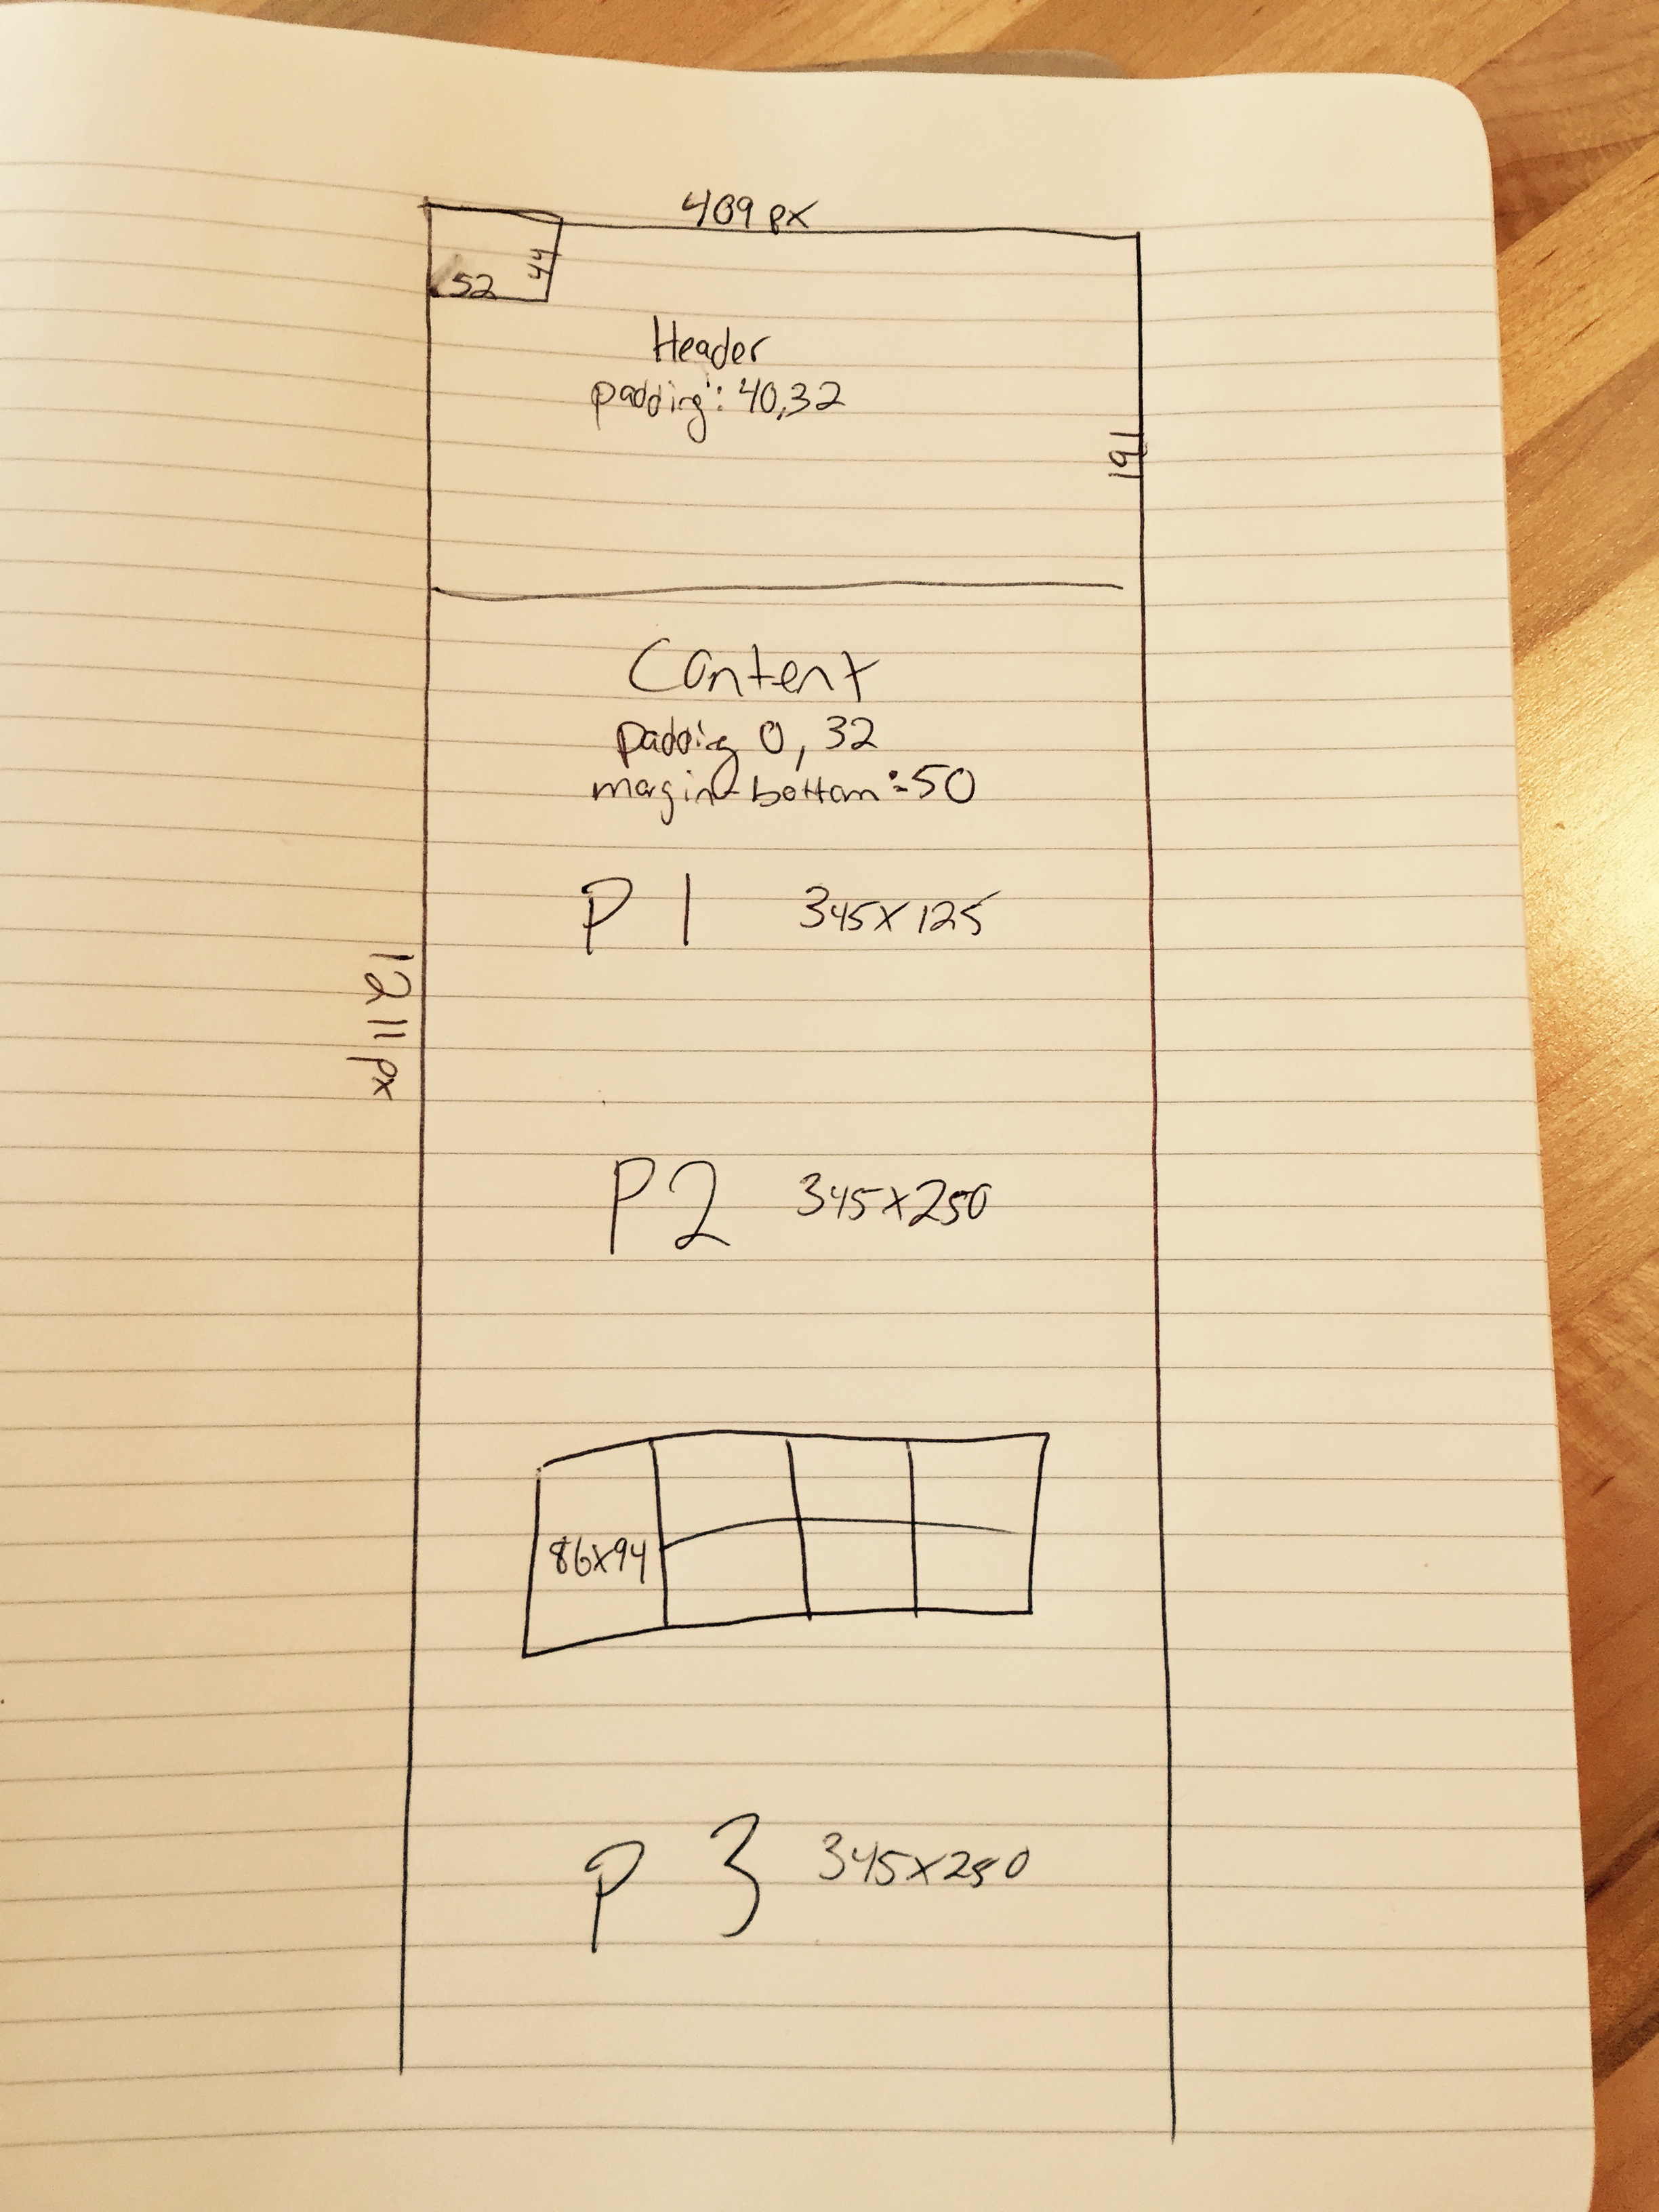 409 px
52
44
Header
padding: 40,32
191
Content
padding 0, 32
margin-bottom:50
P 1 345x125
1211px
P2 345x250
86x94
P 3 345x250